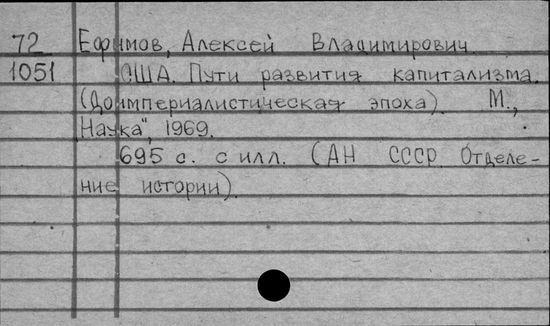 72 Ефимов, Алексей Владимирович.
1051 США. Пути развития капитализма.
(Доимпериалистическая эпоха). М.,
Наука", 1969.
695 с. с илл. (АН СССР. Отделе-
ние истории).